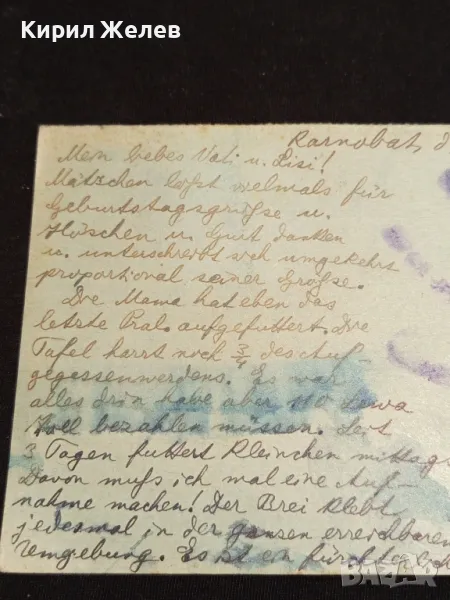 Кирил Желев
Karnobat, d
Mein liebes Vati u. Lisi!
Mätzchen läßt vielmals für
Geburtstagsgrüße u.
Höschen u. Gurt danken
u. unterschreibt sich umgekehrt
proportional seiner Größe.
Die Mama hat eben das
letzte Pral. aufgefuttert. Die
Tafel harrt noch 3/4 des Auf-
gegessenwerdens. Es war
alles drin habe aber 110 Lewa
Zoll bezahlen müssen. Seit
3 Tagen futtert Kleinchen mittags
Davon muß ich mal eine Auf-
nahme machen! Der Brei klebt
jedesmal in der ganzen erreichbaren
Umgebung. Es ist ein fürchterlich
BAZAR.BG